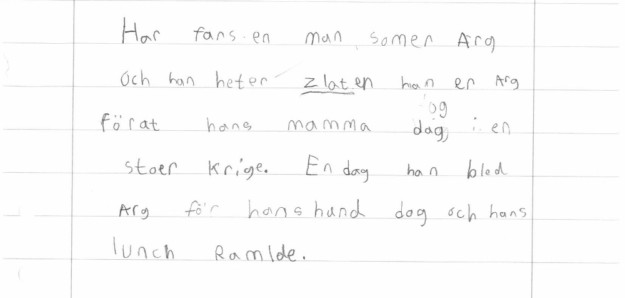 Har fans en man somer Arg
och han heter zlaten han er Arg
förat hans mamma dog i en
stoer krige. En dag han bled
Arg för hans hund dog och hans
lunch Ramlde.